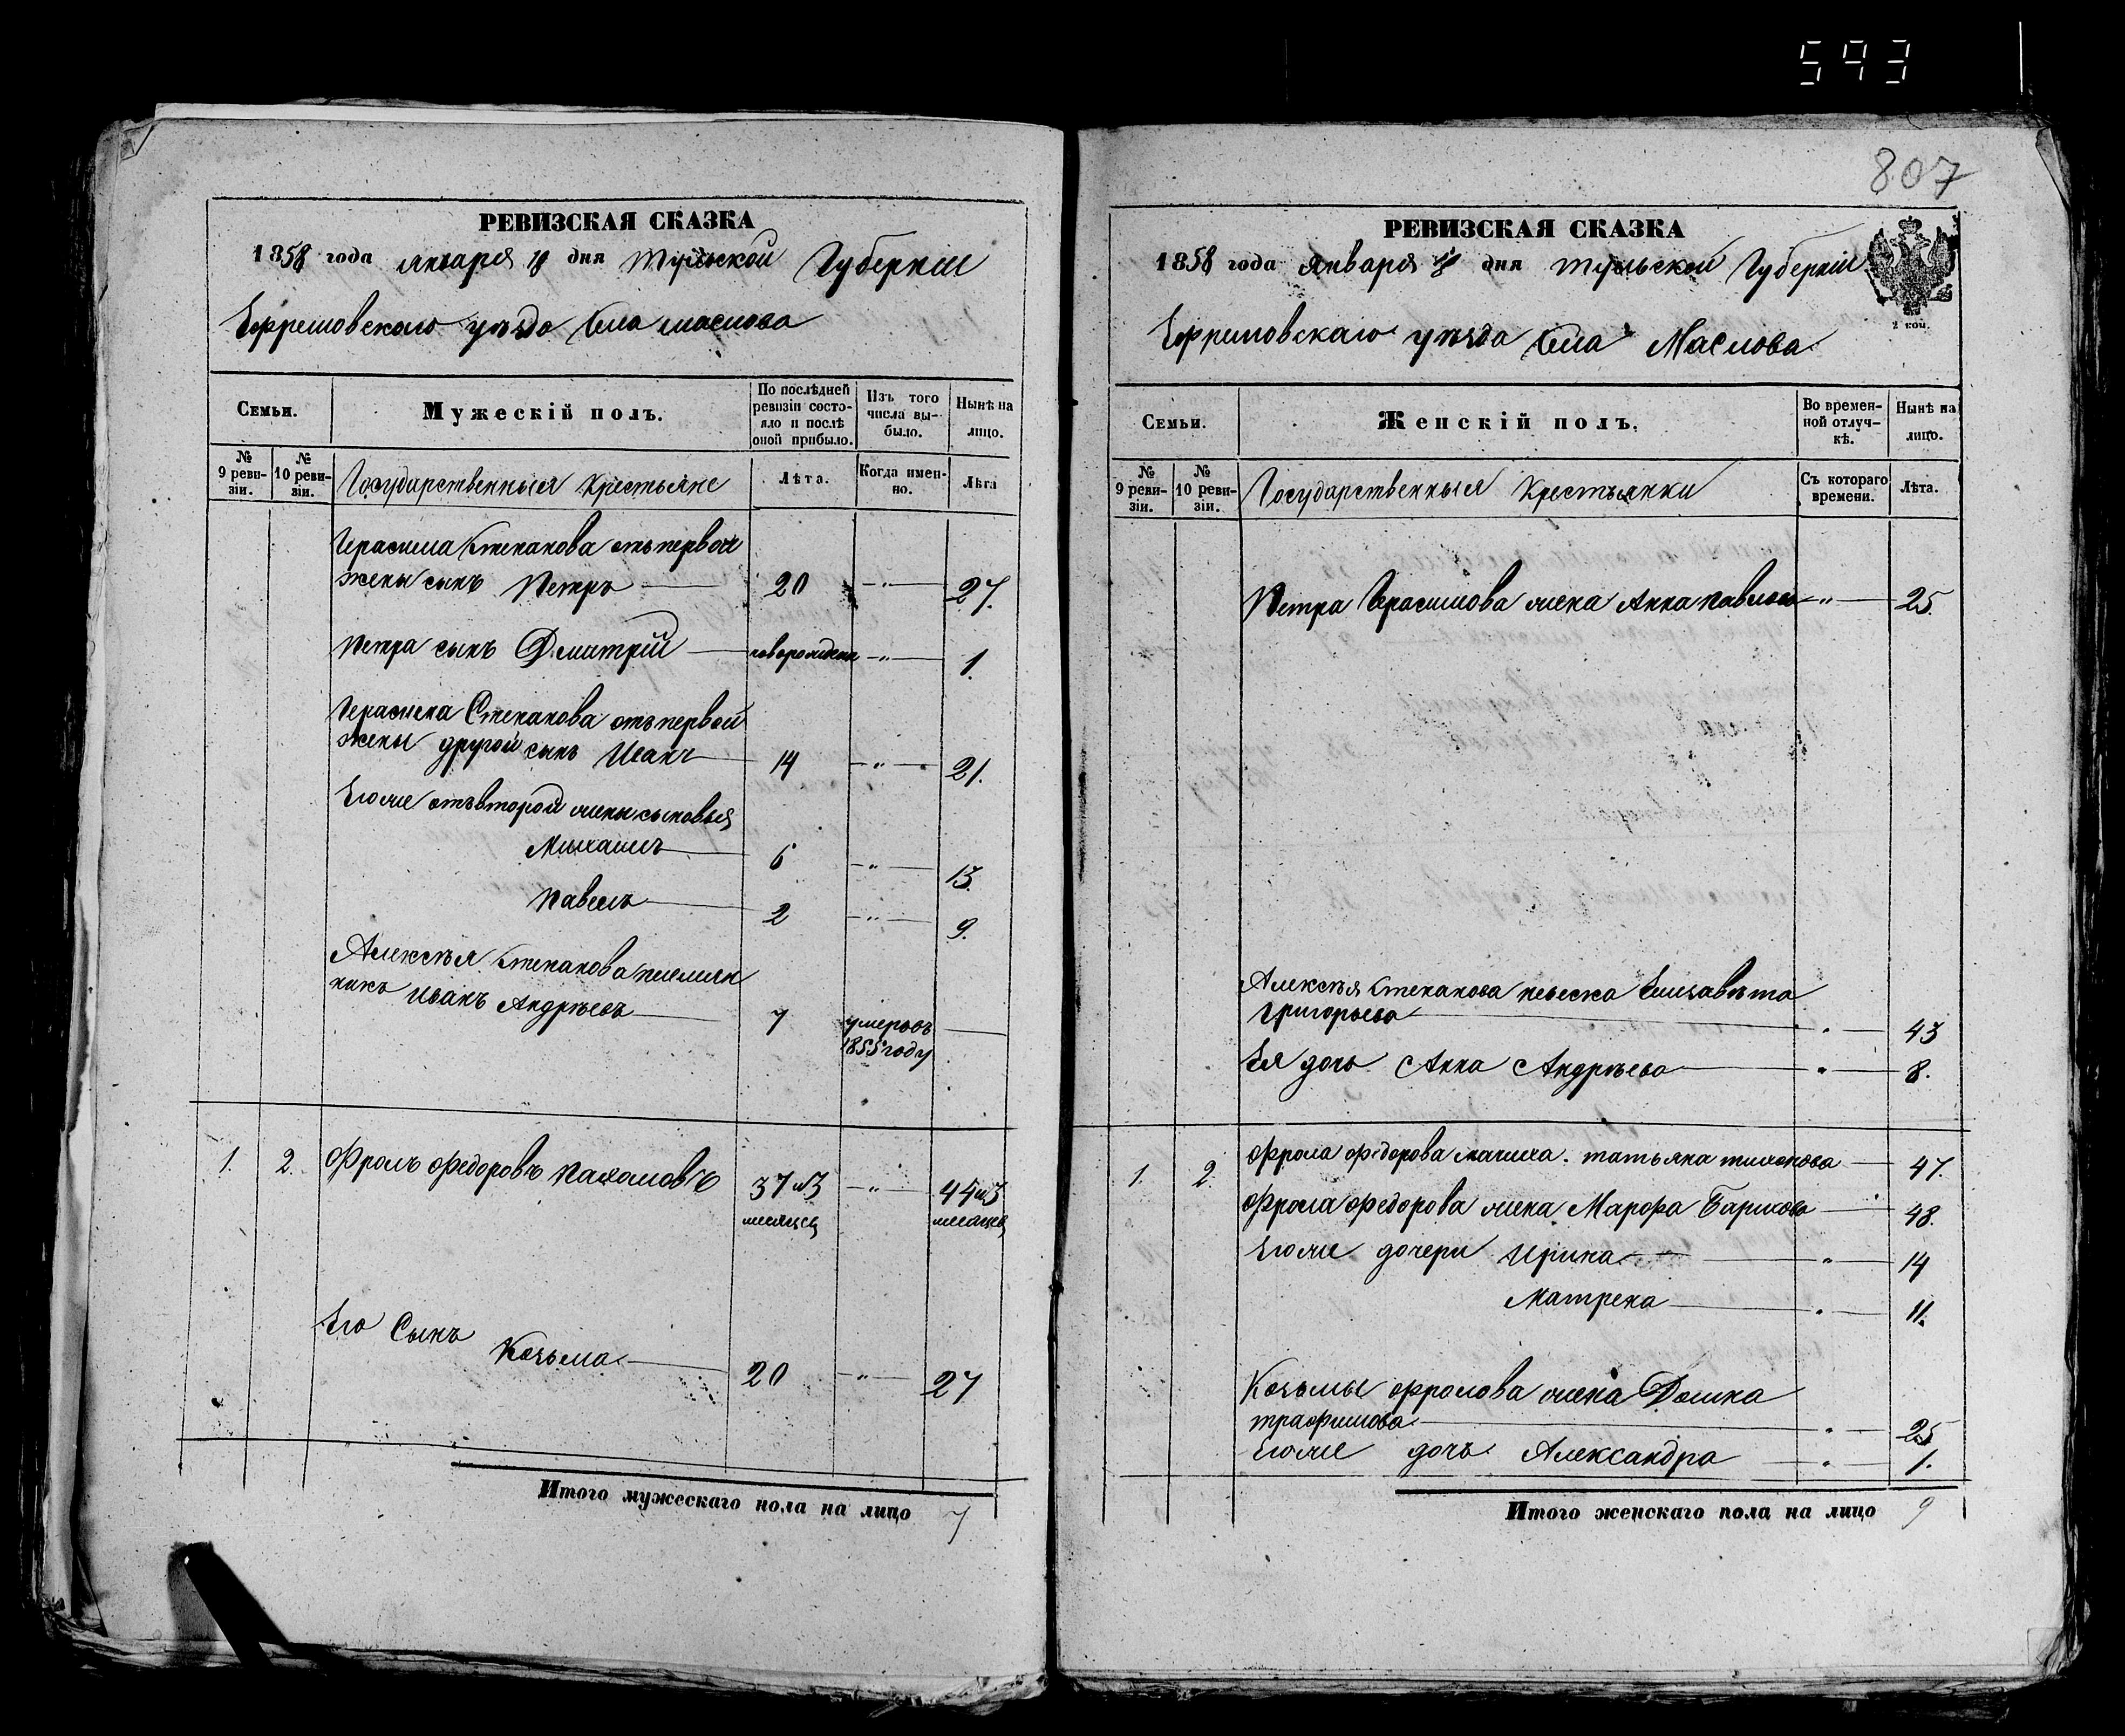 593
807
РЕВИЗСКАЯ СКАЗКА
1858 года января 18 дня Тульской Губерніи
Ефремовскаго уѣзда Села маслова
Семьи.
Мужескій полъ.
По послѣдней ревизіи состояло и послѣ оной прибыло.
Изъ того числа выбыло.
Нынѣ на лицо.
№ 9 ревизіи.
№ 10 ревизіи.
Государственныя крестьяне
Лѣта.
Когда именно.
Лѣта
Герасима Степанова отъ первой
жены сынъ Петръ 20 — " — 27.
Петра сынъ Дмитрій новорожден — " — 1.
Герасима Степанова отъ первой
жены другой сынъ Иванъ 14 — " — 21.
Егоже отъ второй жены сыновья
Михаилъ 6 — " — 13.
Павелъ 2 — " — 9.
Алексѣя Степанова племян
никъ Иванъ Андрѣевъ 7 умеръ въ
1855 году
1. 2. Фролъ Федоровъ Пахамовъ 37 и 3 — " — 44 и 3
месяца месяца
Его Сынъ
Козьма 20 — " — 27
Итого мужескаго пола на лицо 7
РЕВИЗСКАЯ СКАЗКА
1858 года Января 18 дня Тульской Губерніи
2 коп.
Ефримовскаго уѣзда Села Маслова
Семьи.
Женскій полъ.
Во временной отлучкѣ.
Нынѣ на лицо.
№ 9 ревизіи.
№ 10 ревизіи.
Государственныя Крестьянки
Съ котораго времени.
Лѣта.
Петра Герасимова жена Анна павлова — " — 25
Алексѣя Степанова невеска Елизавѣта
Григорьева " — 43
Ея дочь Анна Андрѣева " — 8.
1. 2. Фрола Федорова мачиха. татьяна тихонова — 47.
Фрола Федорова жена Марфа Барисова — 48.
Егоже дочери Ирина " — 14
Матрена " — 11.
Козьмы Фролова жена Домна
трафимова " — 25
Егоже дочь Александра " — 1.
Итого женскаго пола на лицо 9